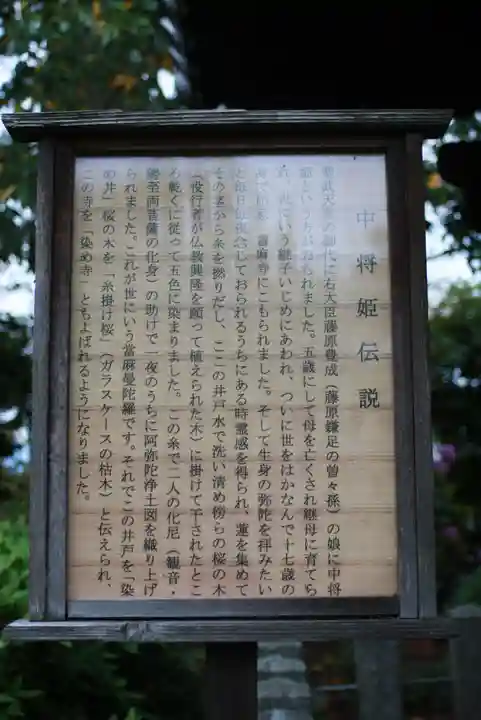 中将姫伝説
聖武天皇の御代に右大臣藤原豊成（藤原鎌足の曽々孫）の娘に中将
姫という方がおられました。五歳にして母を亡くされ継母に育てら
れ、という継子いじめにあわれ、ついに世をはかなんで十七歳の
當麻寺にこもられました。そして生身の弥陀を拝みたい
と毎日念じておられるうちにある時霊感を得られ、蓮を集めて
その茎から糸を撚りだし、ここの井戸水で洗い清め傍らの桜の木
（役行者が仏教興隆を願って植えられた木）に掛けて干されたとこ
ろ乾くに従って五色に染まりました。この糸で二人の化尼（観音・
勢至両菩薩の化身）の助けで一夜のうちに阿弥陀浄土図を織り上げ
られました。これが世にいう當麻曼陀羅です。それでこの井戸を「染
め井」桜の木を「糸掛け桜」（ガラスケースの枯木）と伝えられ、
この寺を「染め寺」ともよばれるようになりました。